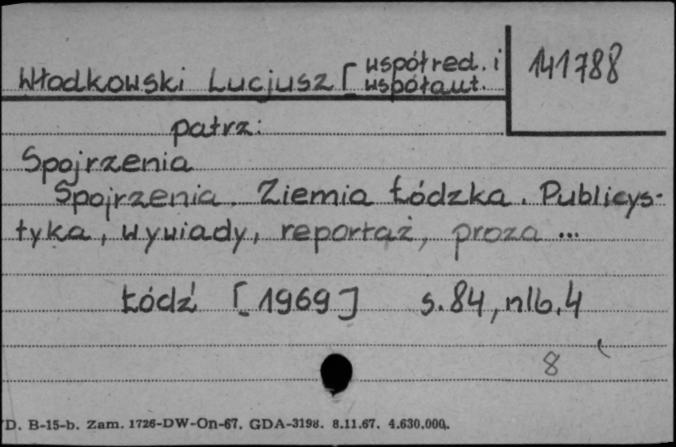 współred. i 141788
Włodkowski Lucjusz [ współaut.
patrz:
Spojrzenia
Spojrzenia. Ziemia Łódzka. Publicys-
tyka, wywiady, reportaż, proza ...
Łódź [1969] s. 84, nlb. 4
8
D. B-15-b. Zam. 1726-DW-On-67. GDA-3198. 8.11.67. 4.630.000.